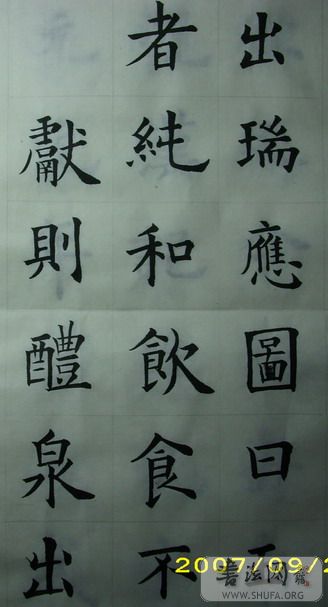 出瑞應圖曰
者純和飲食不
獻則醴泉出
2007/09/2
書法网
WWW.SHUFA.ORG